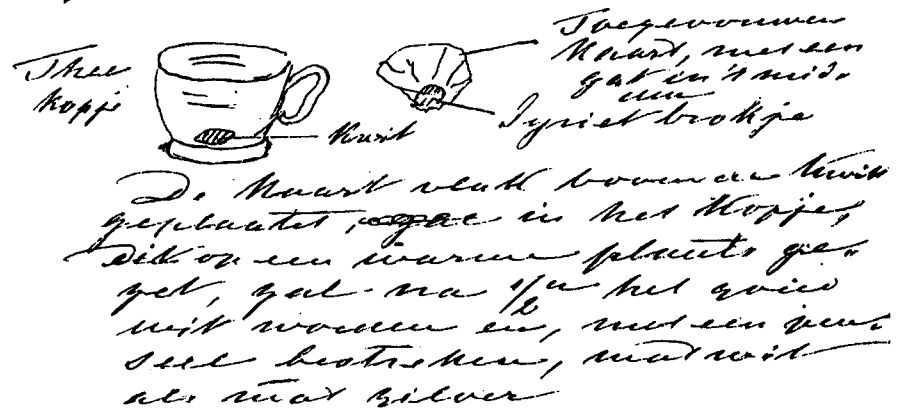 Thee
kopje
Kwik
Toegevouwen
Kaart, met een
gat in 't mid-
den
Pyriet brokje
De Kaart vlak boven de Kwik
geplaatst, in het Kopje,
Dit op een warme plaats ge-
zet, zal na 1/2 u het goud
wit worden en, met een pen-
seel bestreken, mat wit
als mat zilver